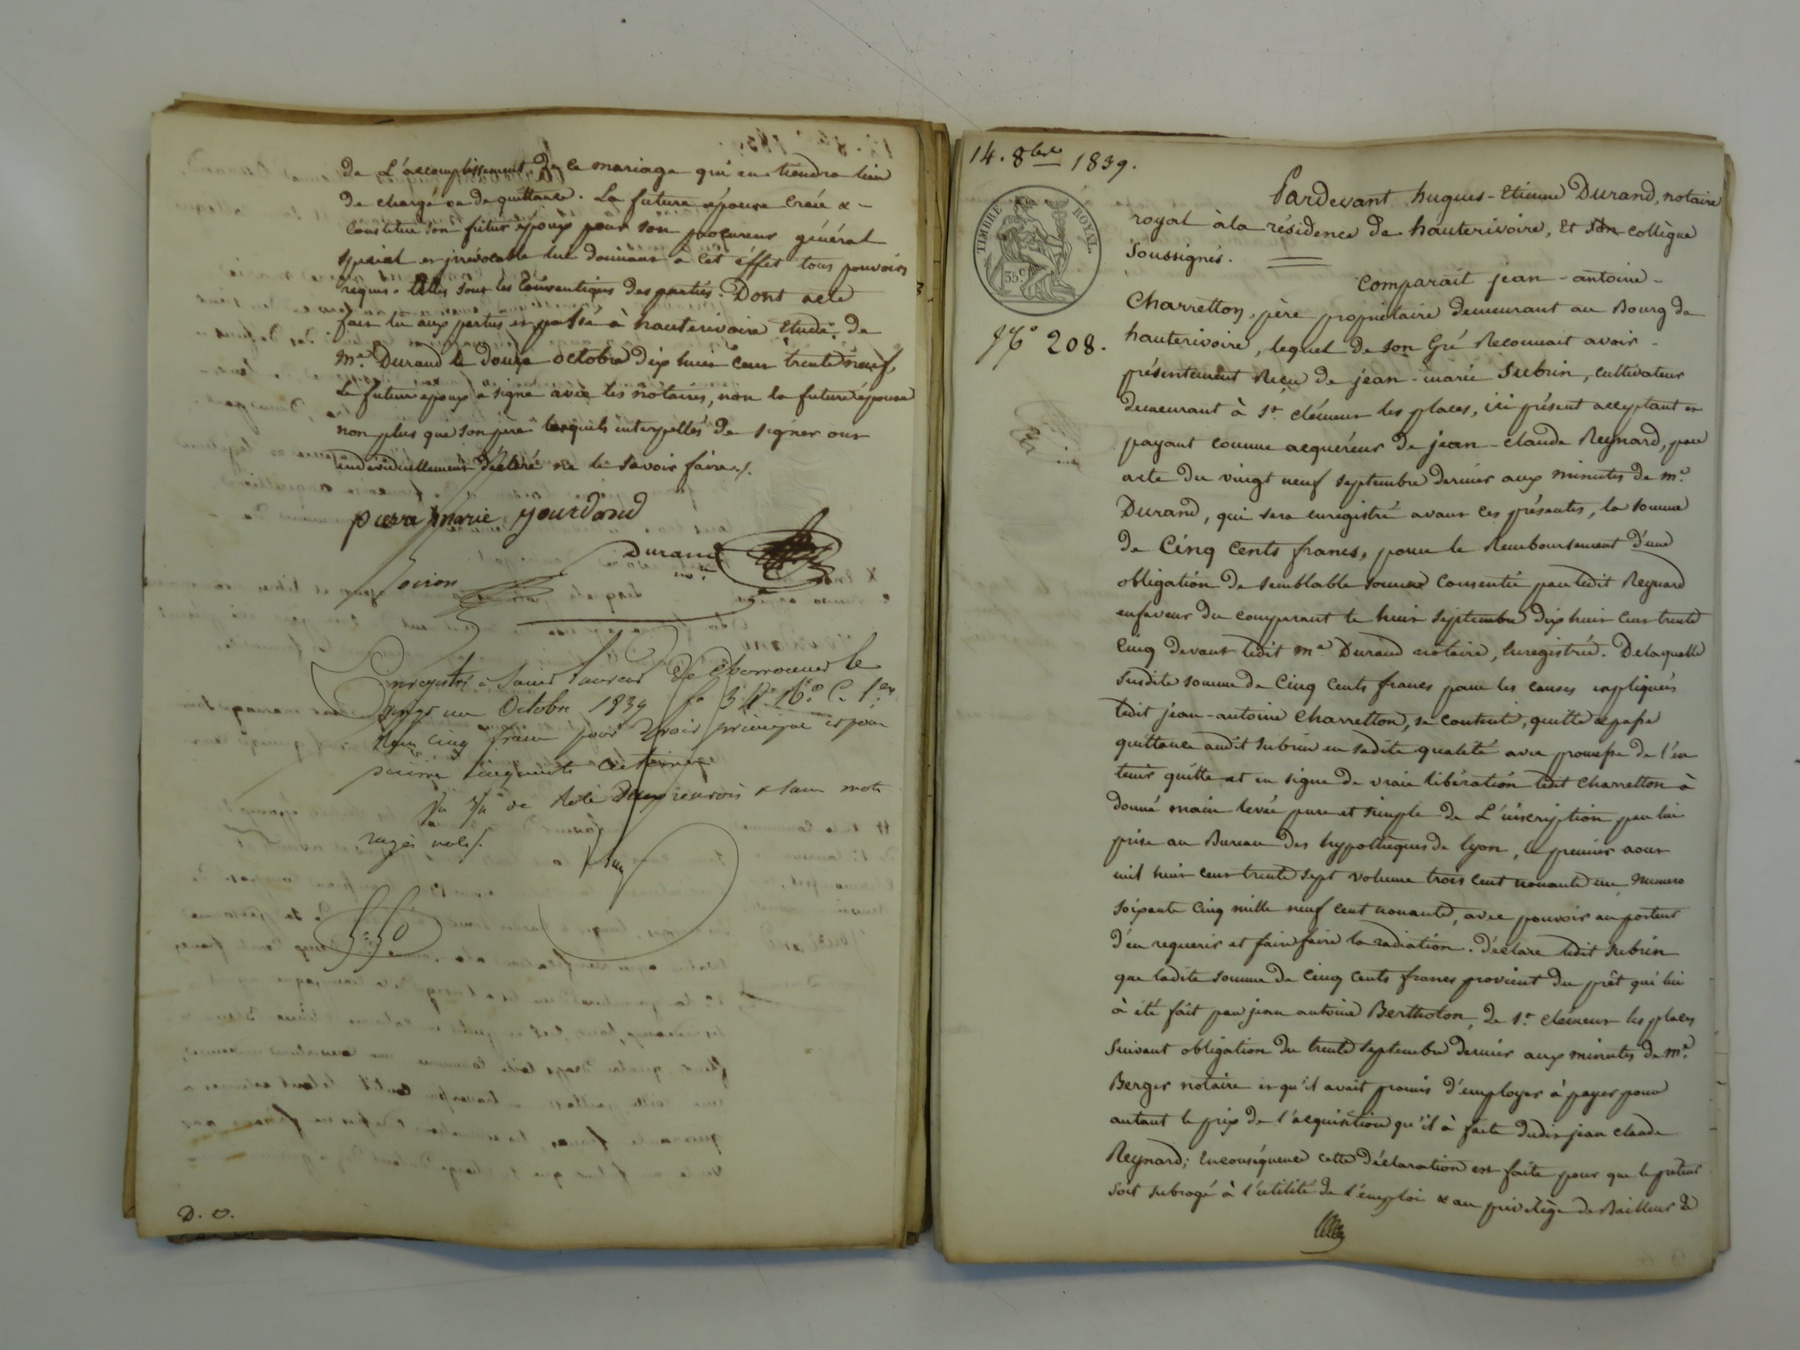 de L'accomplissement de ce mariage qui en tiendra lieu
de charge ou de quittance. La future épouse Créé &
constitue son futur époux pour son procureur général
spécial et irrévocable lui donnant à cet éffet tous pouvoirs
requis. telles sont les Conventions des parties. Dont acte
fait lu aux parties et passé à hauterivoire Etude de
me. Durand le douze octobre dix huit cent trente neuf,
Le futur époux a signé avec les notaires, non la future épouse
non plus que son père lesquels interpellés de signer ont
individuellement déclaré ne le savoir faire./.
pierre marie jourdand
Durand
nre
Enregistré à Saint Laurent de chamousset le
octobre 1839 fo 34 Ro C. 1er
cinq francs pour droit principal et pour
cinquante centimes
rayés nuls/.
D. O.
14. 8bre 1839.
TIMBRE ROYAL
35c
No 208.
Pardevant hugues-Etienne Durand, notaire
royal à la résidence de hauterivoire, Et son collègue
Soussignés.
Comparait jean-antoine-
Charretton, père propriétaire demeurant au Bourg de
hauterivoire, lequel de son Gré Reconnait avoir
présentement Reçu de jean-marie Subrin, cultivateur
demeurant à St. clément les places, ici présent acceptant et
payant comme acquéreur de jean-claude Reynard, par
acte du vingt neuf septembre dernier aux minutes de me.
Durand, qui sera enregistré avant ces présentes, la somme
de Cinq Cents francs, pour le Remboursement d'une
obligation de semblable somme Consentie par ledit Reynard
enfaveur du comparant le huit septembre dix huit cent trente
Cinq devant ledit me. Durand notaire, Enregistrée. De laquelle
susdite somme de Cinq Cents francs pour les causes expliquées
ledit jean-antoine Charretton, se contente, quitte et passe
quittance audit Subrin en sadite qualité avec promesse de l'en
tenir quitte et en signe de vraie libération ledit Charretton à
donné main levée pure et simple de L'inscription par lui
prise au Bureau des hypothèques de lyon, le premier aout
mil huit cent trente sept volume trois cent nonante un, Numero
soixante Cinq mille neuf cent nonante, avec pouvoir au porteur
d'en requerir et faire faire la radiation. déclare ledit Subrin
que ladite somme de Cinq Cents francs provient du prêt qui lui
à été fait par jean antoine Bertholon, de St. clément les places
Suivant obligation du trente septembre dernier aux minutes de me.
Berger notaire et qu'il avait promis d'employer à payer pour
autant le prix de l'acquisition qu'il à faite dudit jean claude
Reynard; Enconséquence cette déclaration est faite pour que le prêteur
soit subrogé à l'utilité de l'emploi & au privilège de Bailleur de